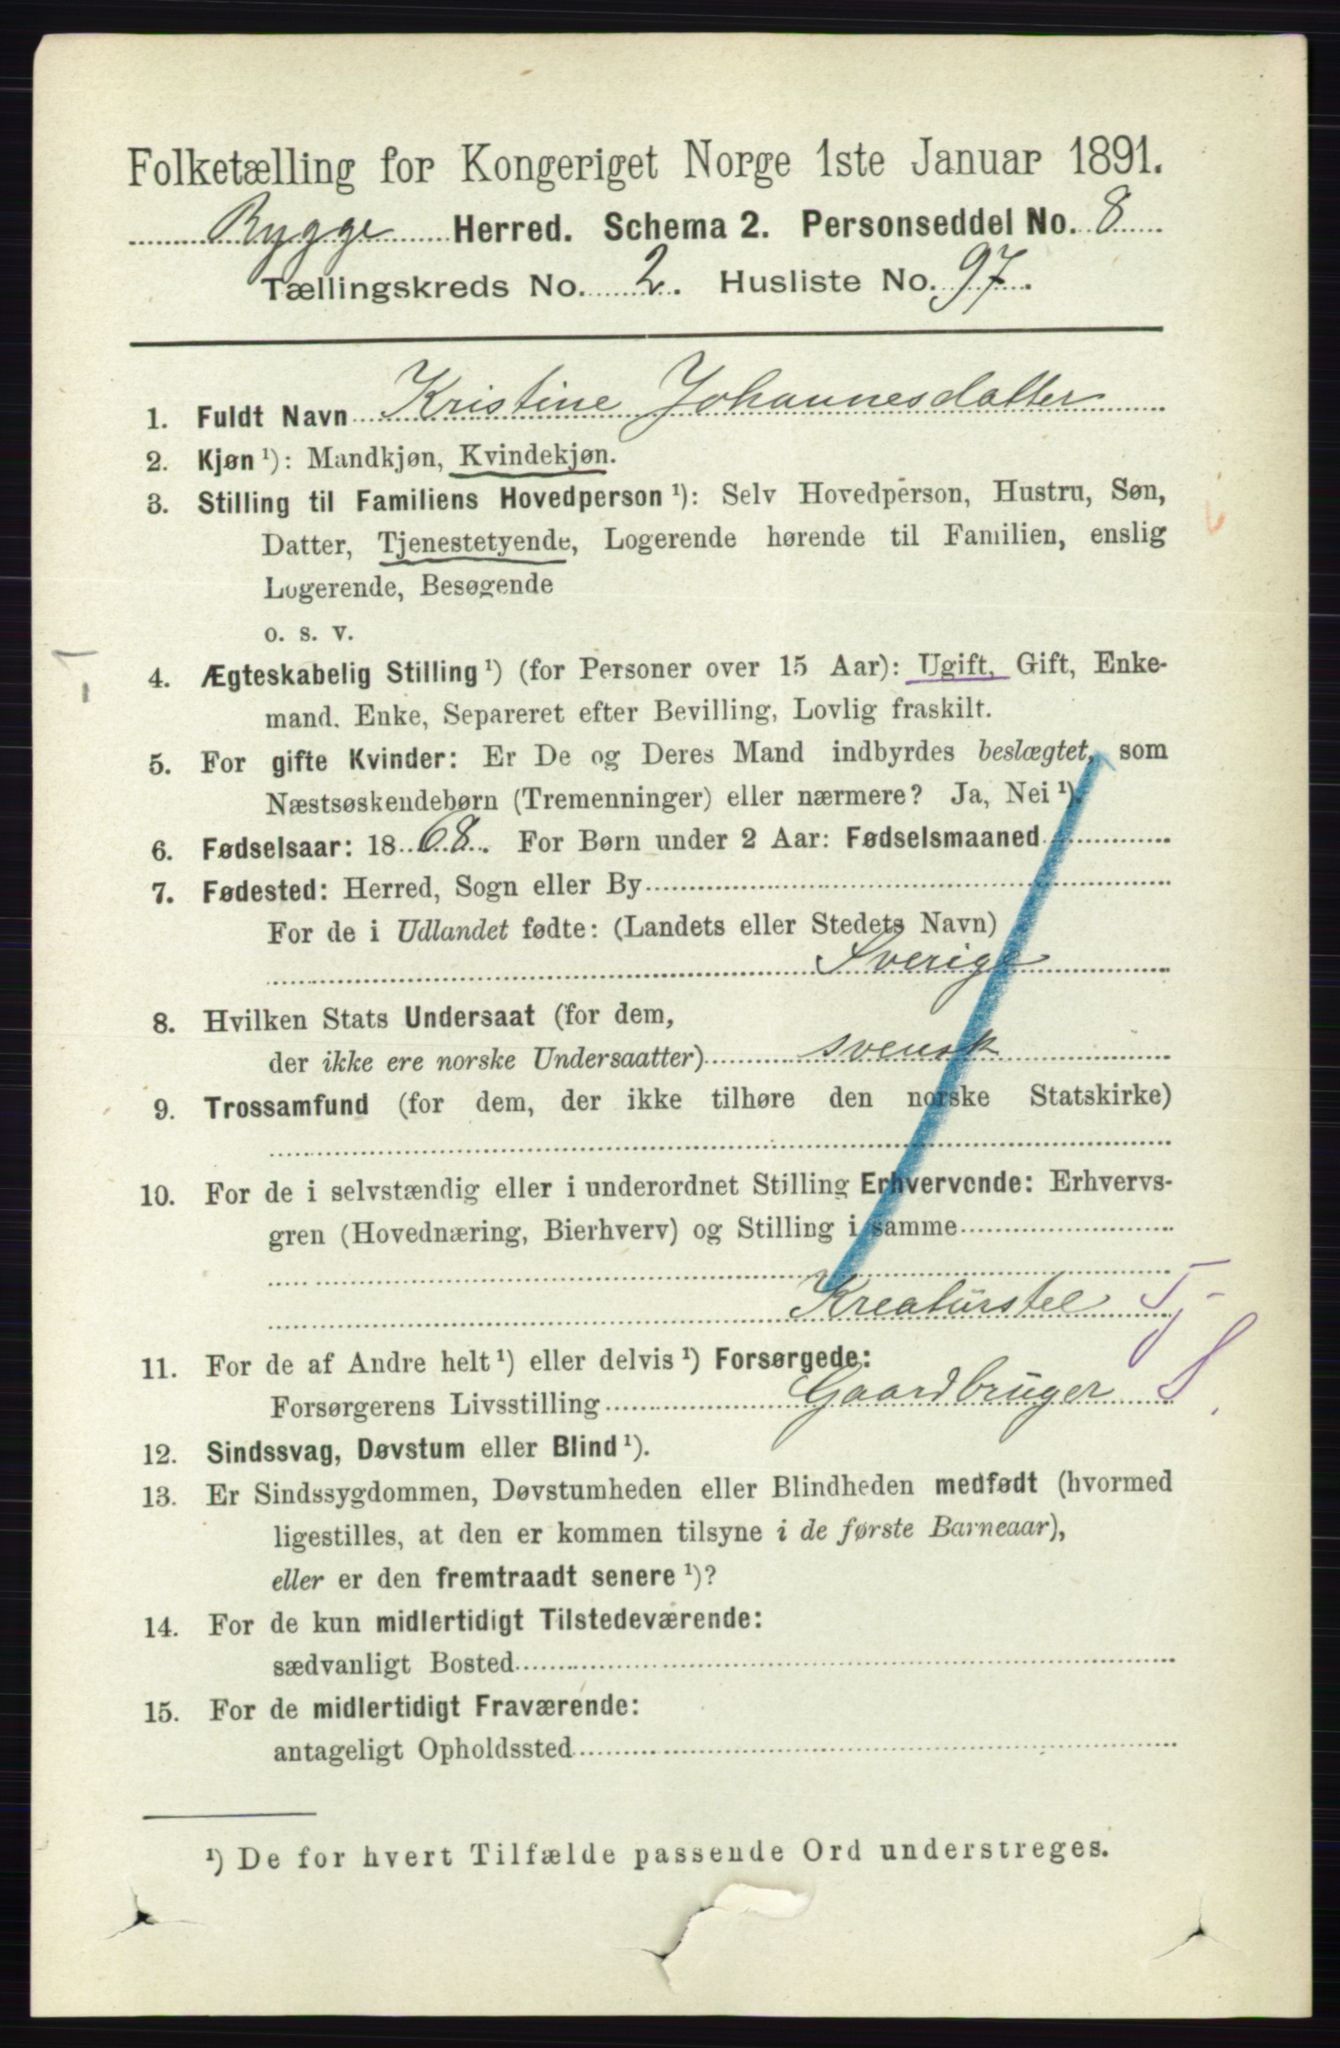 Folketælling for Kongeriget Norge 1ste Januar 1891.
Rygge Herred. Schema 2. Personseddel No. 8
Tællingskreds No. 2. Husliste No. 97.
1. Fuldt Navn Kristine Johannesdatter
2. Kjøn ¹): Mandkjøn, Kvindekjøn.
3. Stilling til Familiens Hovedperson ¹): Selv Hovedperson, Hustru, Søn,
Datter, Tjenestetyende, Logerende hørende til Familien, enslig
Logerende, Besøgende
o. s. v.
4. Ægteskabelig Stilling ¹) (for Personer over 15 Aar): Ugift, Gift, Enke-
mand. Enke, Separeret efter Bevilling, Lovlig fraskilt.
5. For gifte Kvinder: Er De og Deres Mand indbyrdes beslægtet, som
Næstsøskendebørn (Tremenninger) eller nærmere? Ja, Nei ¹)
6. Fødselsaar: 1868. For Børn under 2 Aar: Fødselsmaaned
7. Fødested: Herred, Sogn eller By
For de i Udlandet fødte: (Landets eller Stedets Navn)
Sverige
8. Hvilken Stats Undersaat (for dem,
der ikke ere norske Undersaatter) svensk
9. Trossamfund (for dem, der ikke tilhøre den norske Statskirke)
10. For de i selvstændig eller i underordnet Stilling Erhvervende: Erhvervs-
gren (Hovednæring, Bierhverv) og Stilling i samme
Kreaturstel Tj
11. For de af Andre helt ¹) eller delvis ¹) Forsørgede:
Forsørgerens Livsstilling Gaardbruger S
12. Sindssvag, Døvstum eller Blind ¹).
13. Er Sindssygdommen, Døvstumheden eller Blindheden medfødt (hvormed
ligestilles, at den er kommen tilsyne i de første Barneaar),
eller er den fremtraadt senere ¹)?
14. For de kun midlertidigt Tilstedeværende:
sædvanligt Bosted
15. For de midlertidigt Fraværende:
antageligt Opholdssted
¹) De for hvert Tilfælde passende Ord understreges.